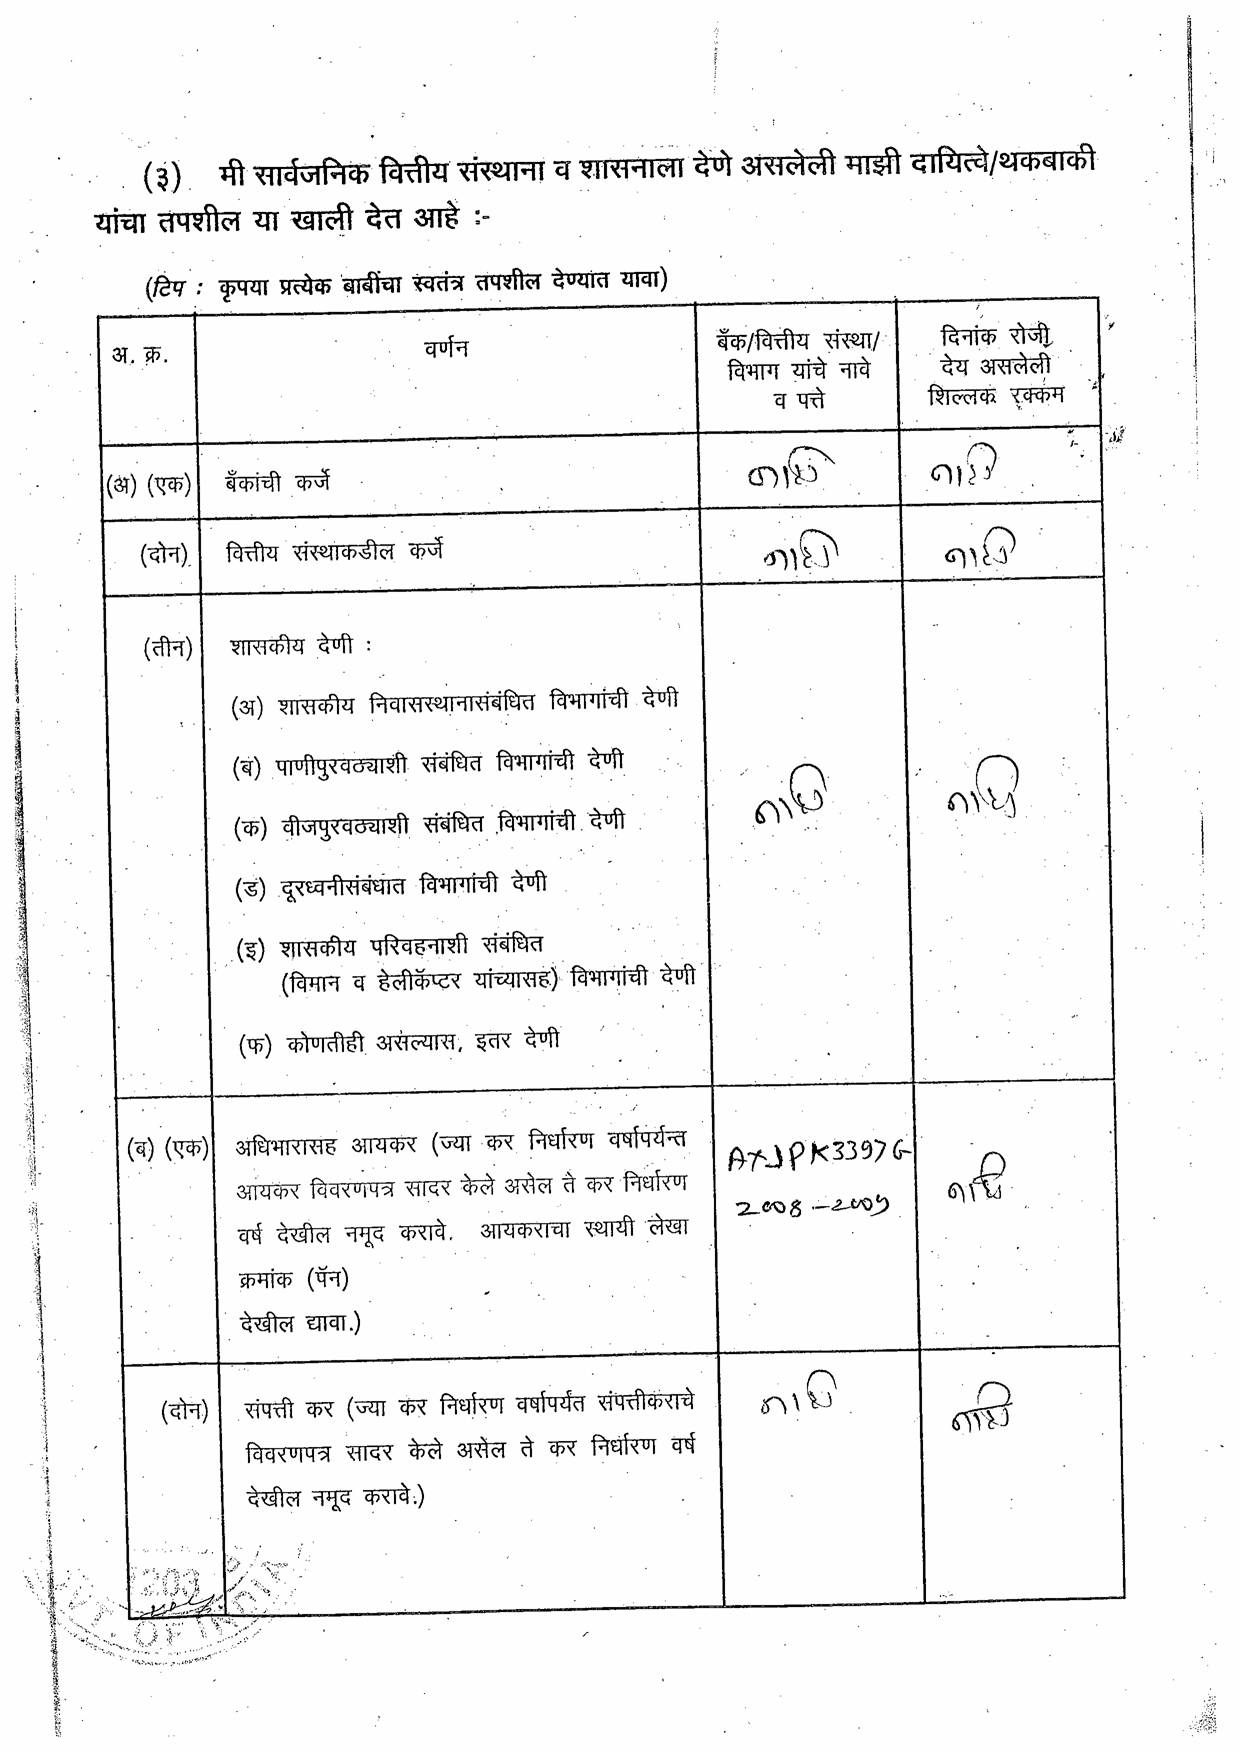 (३) मी सार्वजनिक वित्तीय संस्थाना व शासनाला देणे असलेली माझी दायित्वे/थकबाकी
यांचा तपशील या खाली देत आहे :-
(टिप : कृपया प्रत्येक बाबींचा स्वतंत्र तपशील देण्यात यावा)
अ. क्र.
वर्णन
बँक/वित्तीय संस्था/
विभाग यांचे नावे
व पत्ते
दिनांक रोजी
देय असलेली
शिल्लक रक्कम
(अ) (एक) बँकांची कर्जे नाही नाही
(दोन) वित्तीय संस्थाकडील कर्जे नाही नाही
(तीन) शासकीय देणी :
(अ) शासकीय निवासस्थानासंबंधित विभागांची देणी
(ब) पाणीपुरवठ्याशी संबंधित विभागांची देणी
नाही नाही
(क) वीजपुरवठ्याशी संबंधित विभागांची देणी
(ड) दूरध्वनीसंबंधात विभागांची देणी
(इ) शासकीय परिवहनाशी संबंधित
(विमान व हेलीकॅप्टर यांच्यासह) विभागांची देणी
(फ) कोणतीही असल्यास, इतर देणी
(ब) (एक) अधिभारासह आयकर (ज्या कर निर्धारण वर्षापर्यन्त
आयकर विवरणपत्र सादर केले असेल ते कर निर्धारण
वर्ष देखील नमूद करावे. आयकराचा स्थायी लेखा
क्रमांक (पॅन)
देखील द्यावा.)
AXJPK3397G
2008-2009
नाही
(दोन) संपत्ती कर (ज्या कर निर्धारण वर्षापर्यंत संपत्तीकराचे
विवरणपत्र सादर केले असेल ते कर निर्धारण वर्ष
देखील नमूद करावे.)
नाही नाही
203
OF INDIA